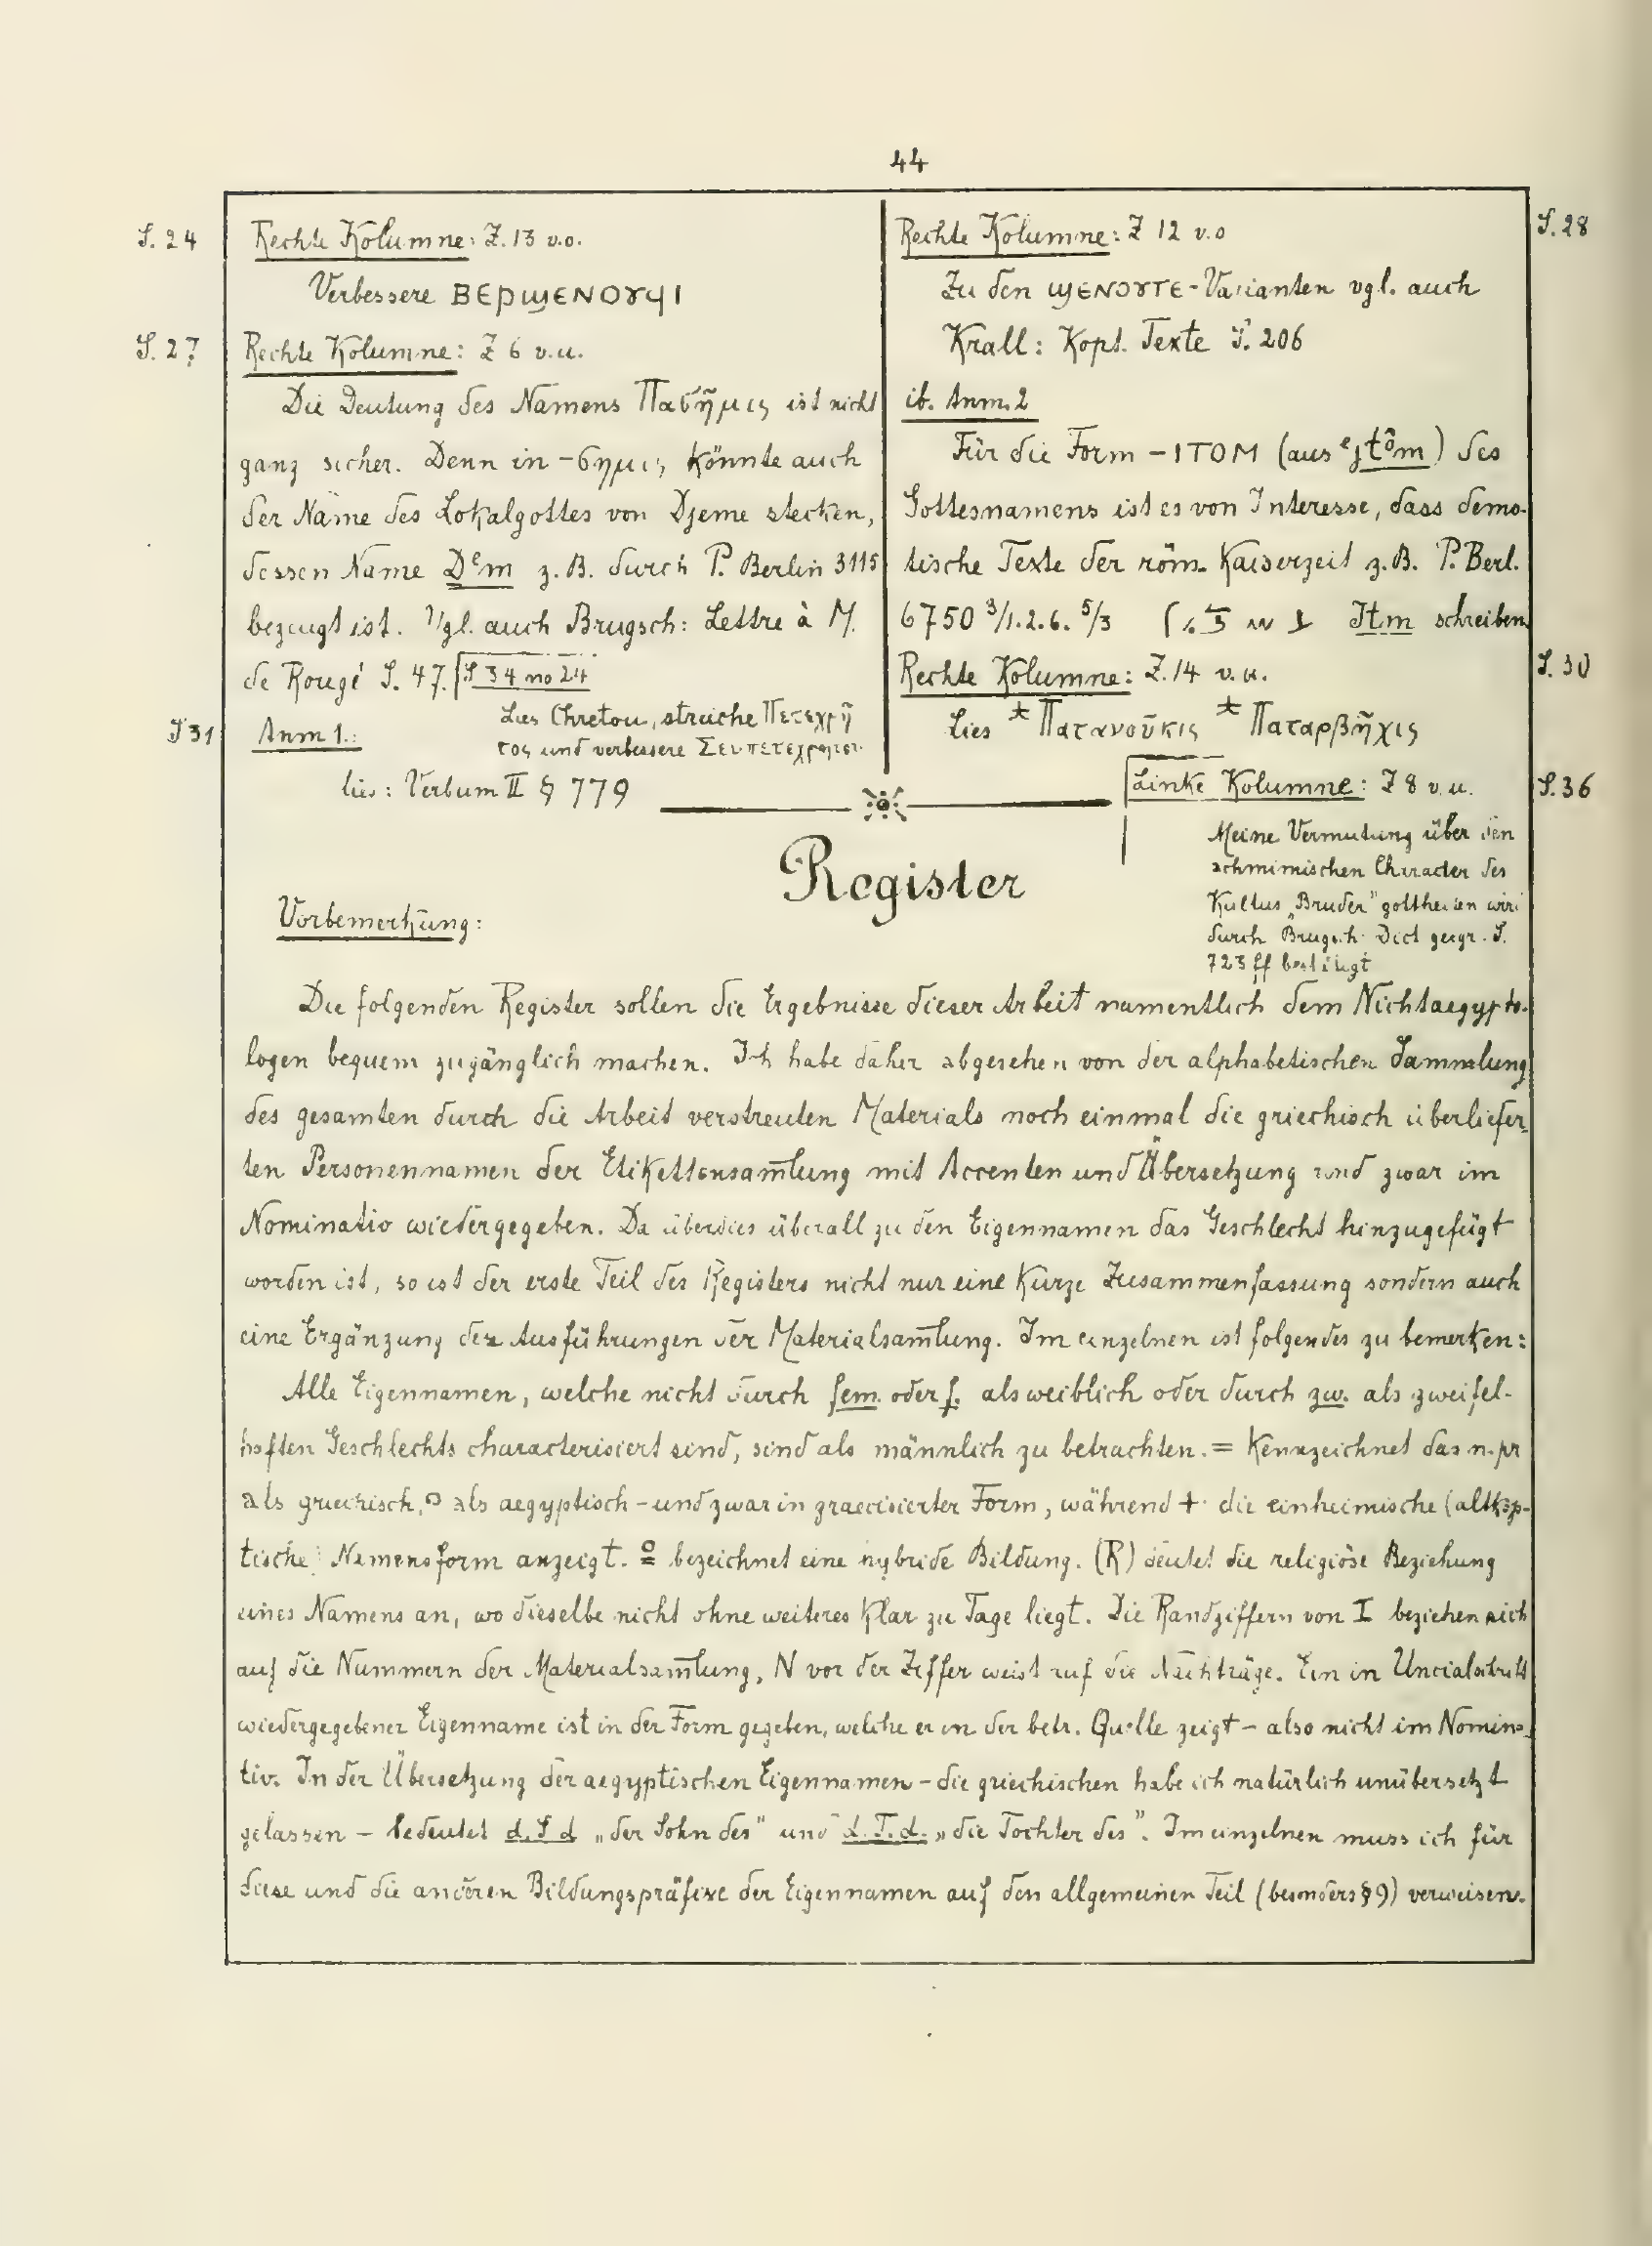 44
S. 24 Rechte Kolumne: Z. 13 v.o.
Verbessere ΒΕΡϢΕΝΟΥϤΙ
S. 27 Rechte Kolumne: Z 6 v.u.
Die Deutung des Namens Πασῆμις ist nicht
ganz sicher. Denn in -σημις könnte auch
der Name des Lokalgottes von Djeme stecken,
dessen Name Dem z.B. durch P. Berlin 3115
bezeugt ist. Vgl. auch Brugsch: Lettre à M.
de Rougé S. 47.
S 34 no 24
Lies Chretou, streiche Πετεχρῆ
τος und verbessere
S 31 Anm 1.:
lies: Verbum II § 779
Rechte Kolumne: Z 12 v.o S. 28
Zu den ϢΕΝΟΥΤΕ-Varianten vgl. auch
Krall: Kopt. Texte S. 206
ib. Anm. 2
Für die Form -ITOM (aus) des
Gottesnamens ist es von Interesse, dass demo-
tische Texte der röm. Kaiserzeit z.B. P. Berl.
6750 3/1.2.6. 5/3 Itm schreiben
Rechte Kolumne: Z. 14 v.u. S. 30
Lies * Πατανοῦκις * Παταρβῆχις
Linke Kolumne: Z 8 v.u. S. 36
Meine Vermutung über den
achmimischen Character des
Kultus „Bruder" gottheiten wird
durch Brugsch Dict geogr. S.
723 ff bestätigt
Register
Vorbemerkung:
Die folgenden Register sollen die Ergebnisse dieser Arbeit namentlich dem Nichtaegypto-
logen bequem zugänglich machen. Ich habe daher abgesehen von der alphabetischen Sammlung
des gesamten durch die Arbeit verstreuten Materials noch einmal die griechisch überliefer-
ten Personennamen der Etikettensam̄lung mit Accenten und Übersetzung und zwar im
Nominativ wiedergegeben. Da überdies überall zu den Eigennamen das Geschlecht hinzugefügt
worden ist, so ist der erste Teil des Registers nicht nur eine kurze Zusammenfassung sondern auch
eine Ergänzung der Ausführungen der Materialsam̄lung. Im einzelnen ist folgendes zu bemerken:
Alle Eigennamen, welche nicht durch fem. oder f. als weiblich oder durch zw. als zweifel-
haften Geschlechts characterisiert sind, sind als männlich zu betrachten. = kennzeichnet das n. pr
als griechisch, o als aegyptisch - und zwar in graecisierter Form, während + die einheimische (altkop-
tische) Namensform anzeigt. ≗ bezeichnet eine hybride Bildung. (R) deutet die religiöse Beziehung
eines Namens an, wo dieselbe nicht ohne weiteres klar zu Tage liegt. Die Randziffern von I beziehen sich
auf die Nummern der Materialsam̄lung, N vor der Ziffer weist auf die Nachträge. Ein in Uncialschrift
wiedergegebener Eigenname ist in der Form gegeben, welche er in der betr. Quelle zeigt - also nicht im Nomina-
tiv. In der Übersetzung der aegyptischen Eigennamen - die griechischen habe ich natürlich unübersetzt
gelassen - bedeutet d. S d „der Sohn des" und d. T. d. „die Tochter des". Im einzelnen muss ich für
diese und die anderen Bildungspräfixe der Eigennamen auf den allgemeinen Teil (besonders § 9) verweisen.